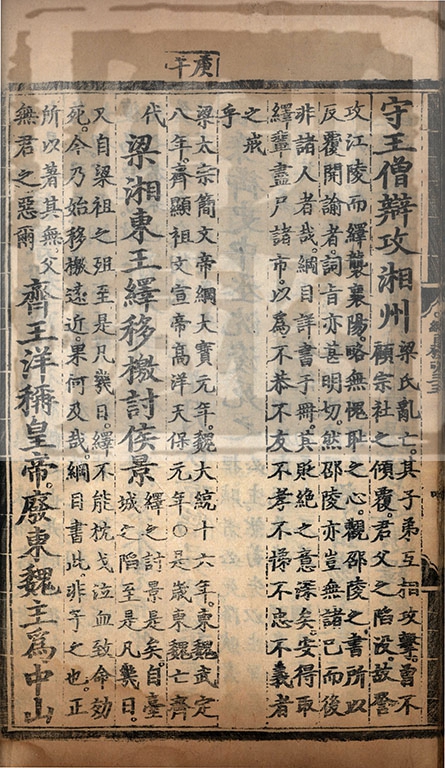 庚午
守王僧辯攻湘州
梁氏亂亡其子弟互相攻擊曾不
顧宗社之傾覆君父之陷没故詧
攻江陵而繹襲襄陽略無愧恥之心觀邵陵之書所以
反覆開諭者詞旨亦甚明切然邵陵亦豈無諸己而後
非諸人者哉綱目詳書于冊其貶絶之意深矣安得取
繹輩盡尸諸市以爲不恭不友不孝不悌不忠不義者
之戒
乎
梁太宗簡文帝綱大寶元年魏大統十六年東魏武定
八年齊顯祖文宣帝高洋天保元年○是歲東魏亡齊
代
梁湘東王繹移檄討侯景
繹之討景是矣自臺
城之陷至是凡幾日
又自梁祖之殂至是凡幾日繹不能枕戈泣血致命効
死今乃始移檄遠近果何及哉綱目書此非予之也正
所以著其無父
無君之惡爾
齊王洋稱皇帝廢東魏主爲中山